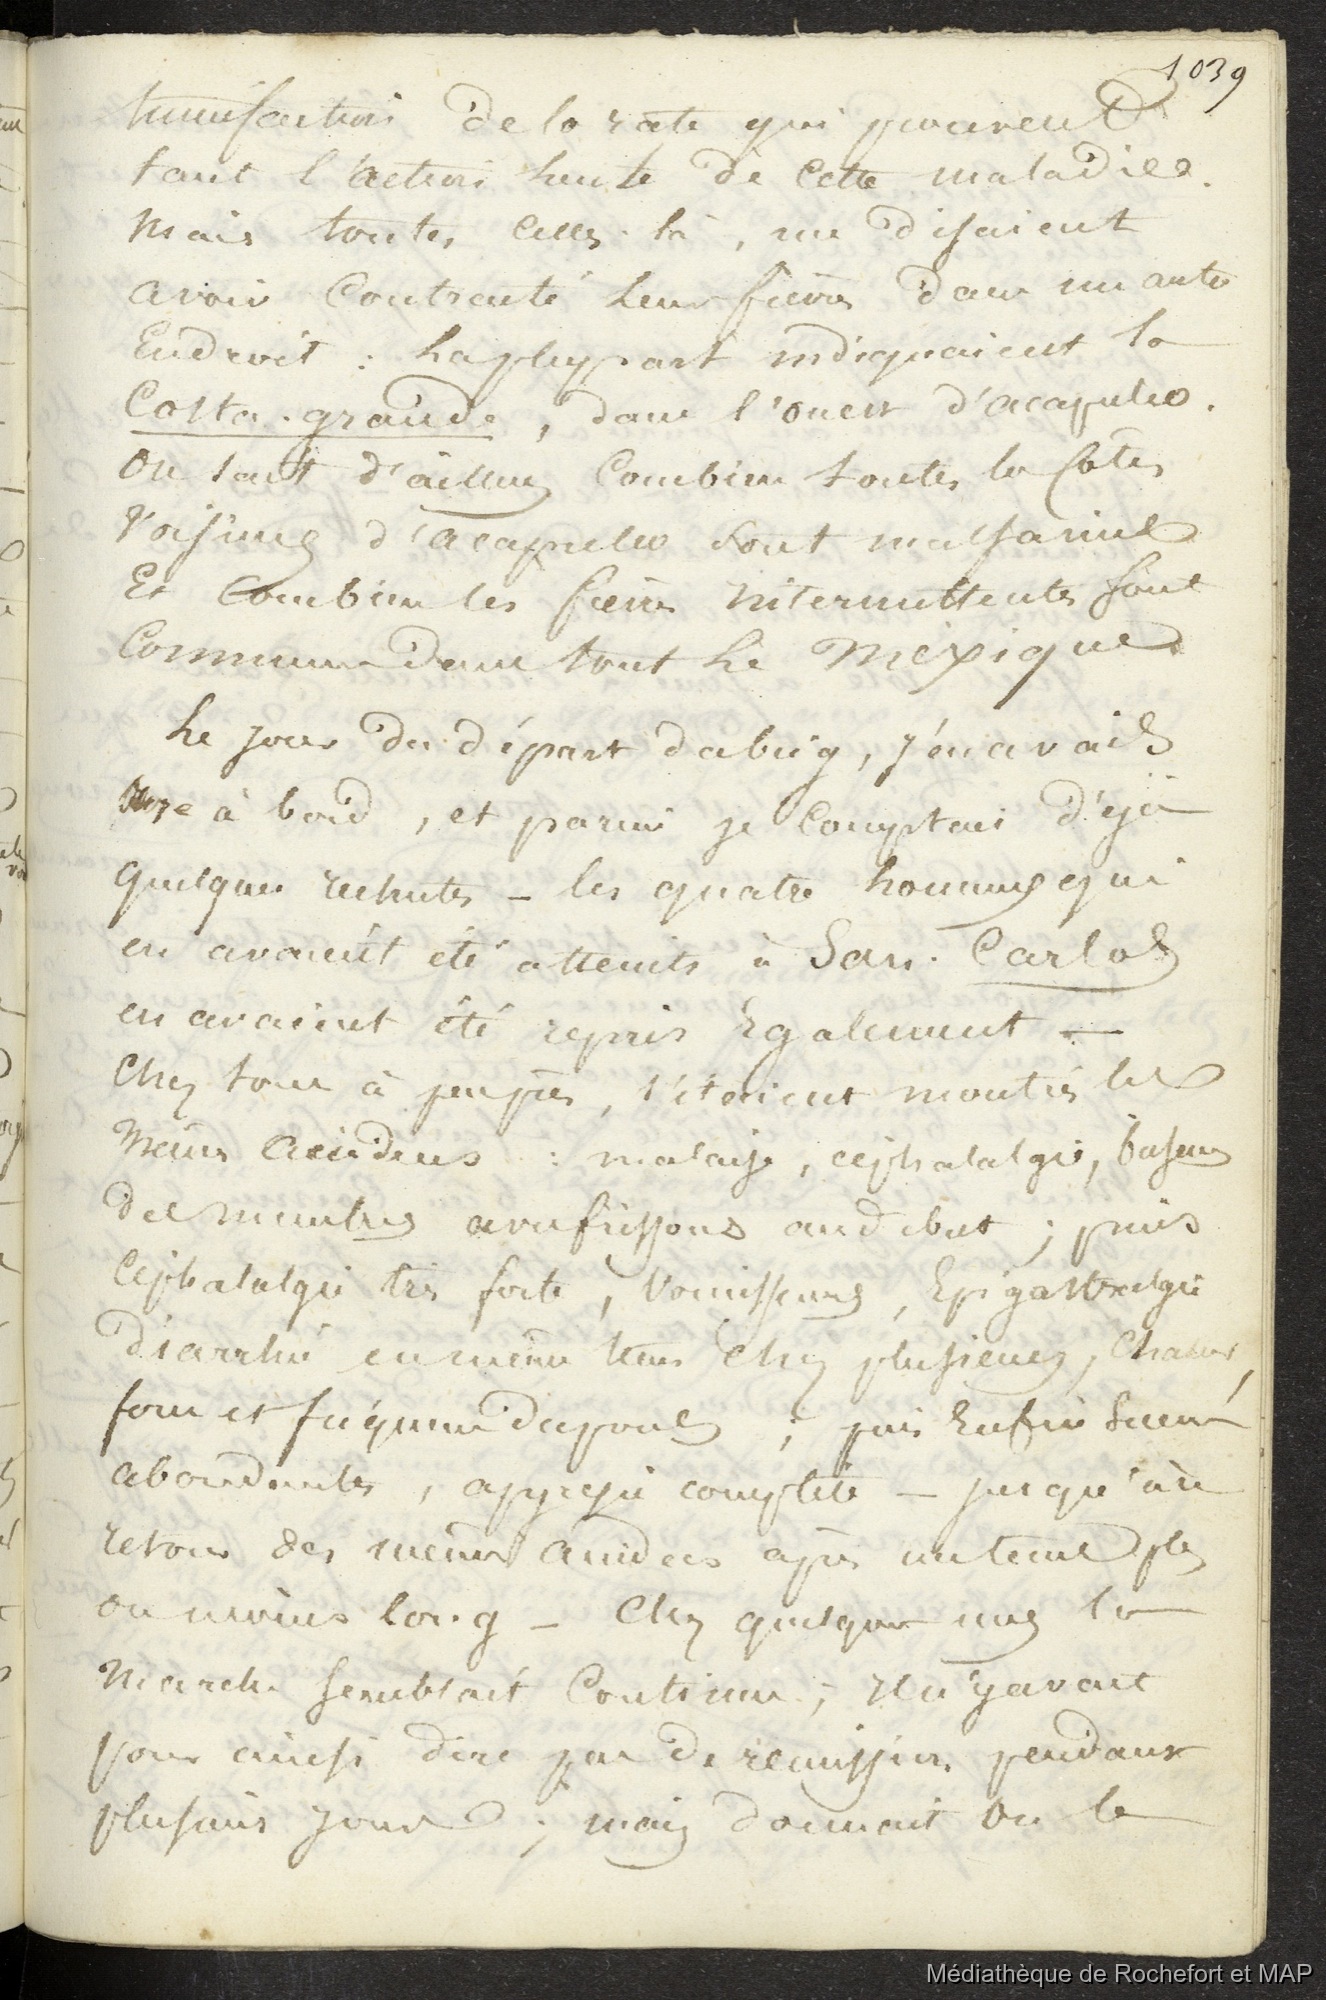 1039
tumefaction de la rate qui prouvent
tant l'action lente de cette maladie.
Mais toutes celles-là, me disaient
avoir contracté leur fièvre dans un autre
Endroit : la pluspart indiquaient la
Costa-grande, dans l'ouest d'acapulco.
On sait d'ailleurs combien toutes les côtes
voisines d'acapulco sont malsaines
Et combien les fièvres intermittentes sont
Communes dans tout le Méxique
Le jour du départ du brig, j'en avais
onze à bord, et parmi je comptais déjà
quelques rechutes – les quatre hommes qui
en avaient été atteints à San-Carlos
en avaient été repris Egalement —
Chez tous à peu près, s'étaient montrés les
mêmes accidens : malaise, céphalalgie,
des membres avec frissons au début ; puis
Céphalalgie très forte, Vomissemens, Epigastralgie
Diarrhée en même tems chez plusieurs, Chaleur,
force et fréquence du pouls ; puis Enfin Sueurs
abondantes, apyrexie complète – jusqu'au
retour des mêmes accidens après un tems plus
ou moins long – Chez quelques uns la
marche semblait Continue ; il n'y avait
pour ainsi dire pas de rémission pendant
plusieurs jours ; mais donnait on le
Médiathèque de Rochefort et MAP